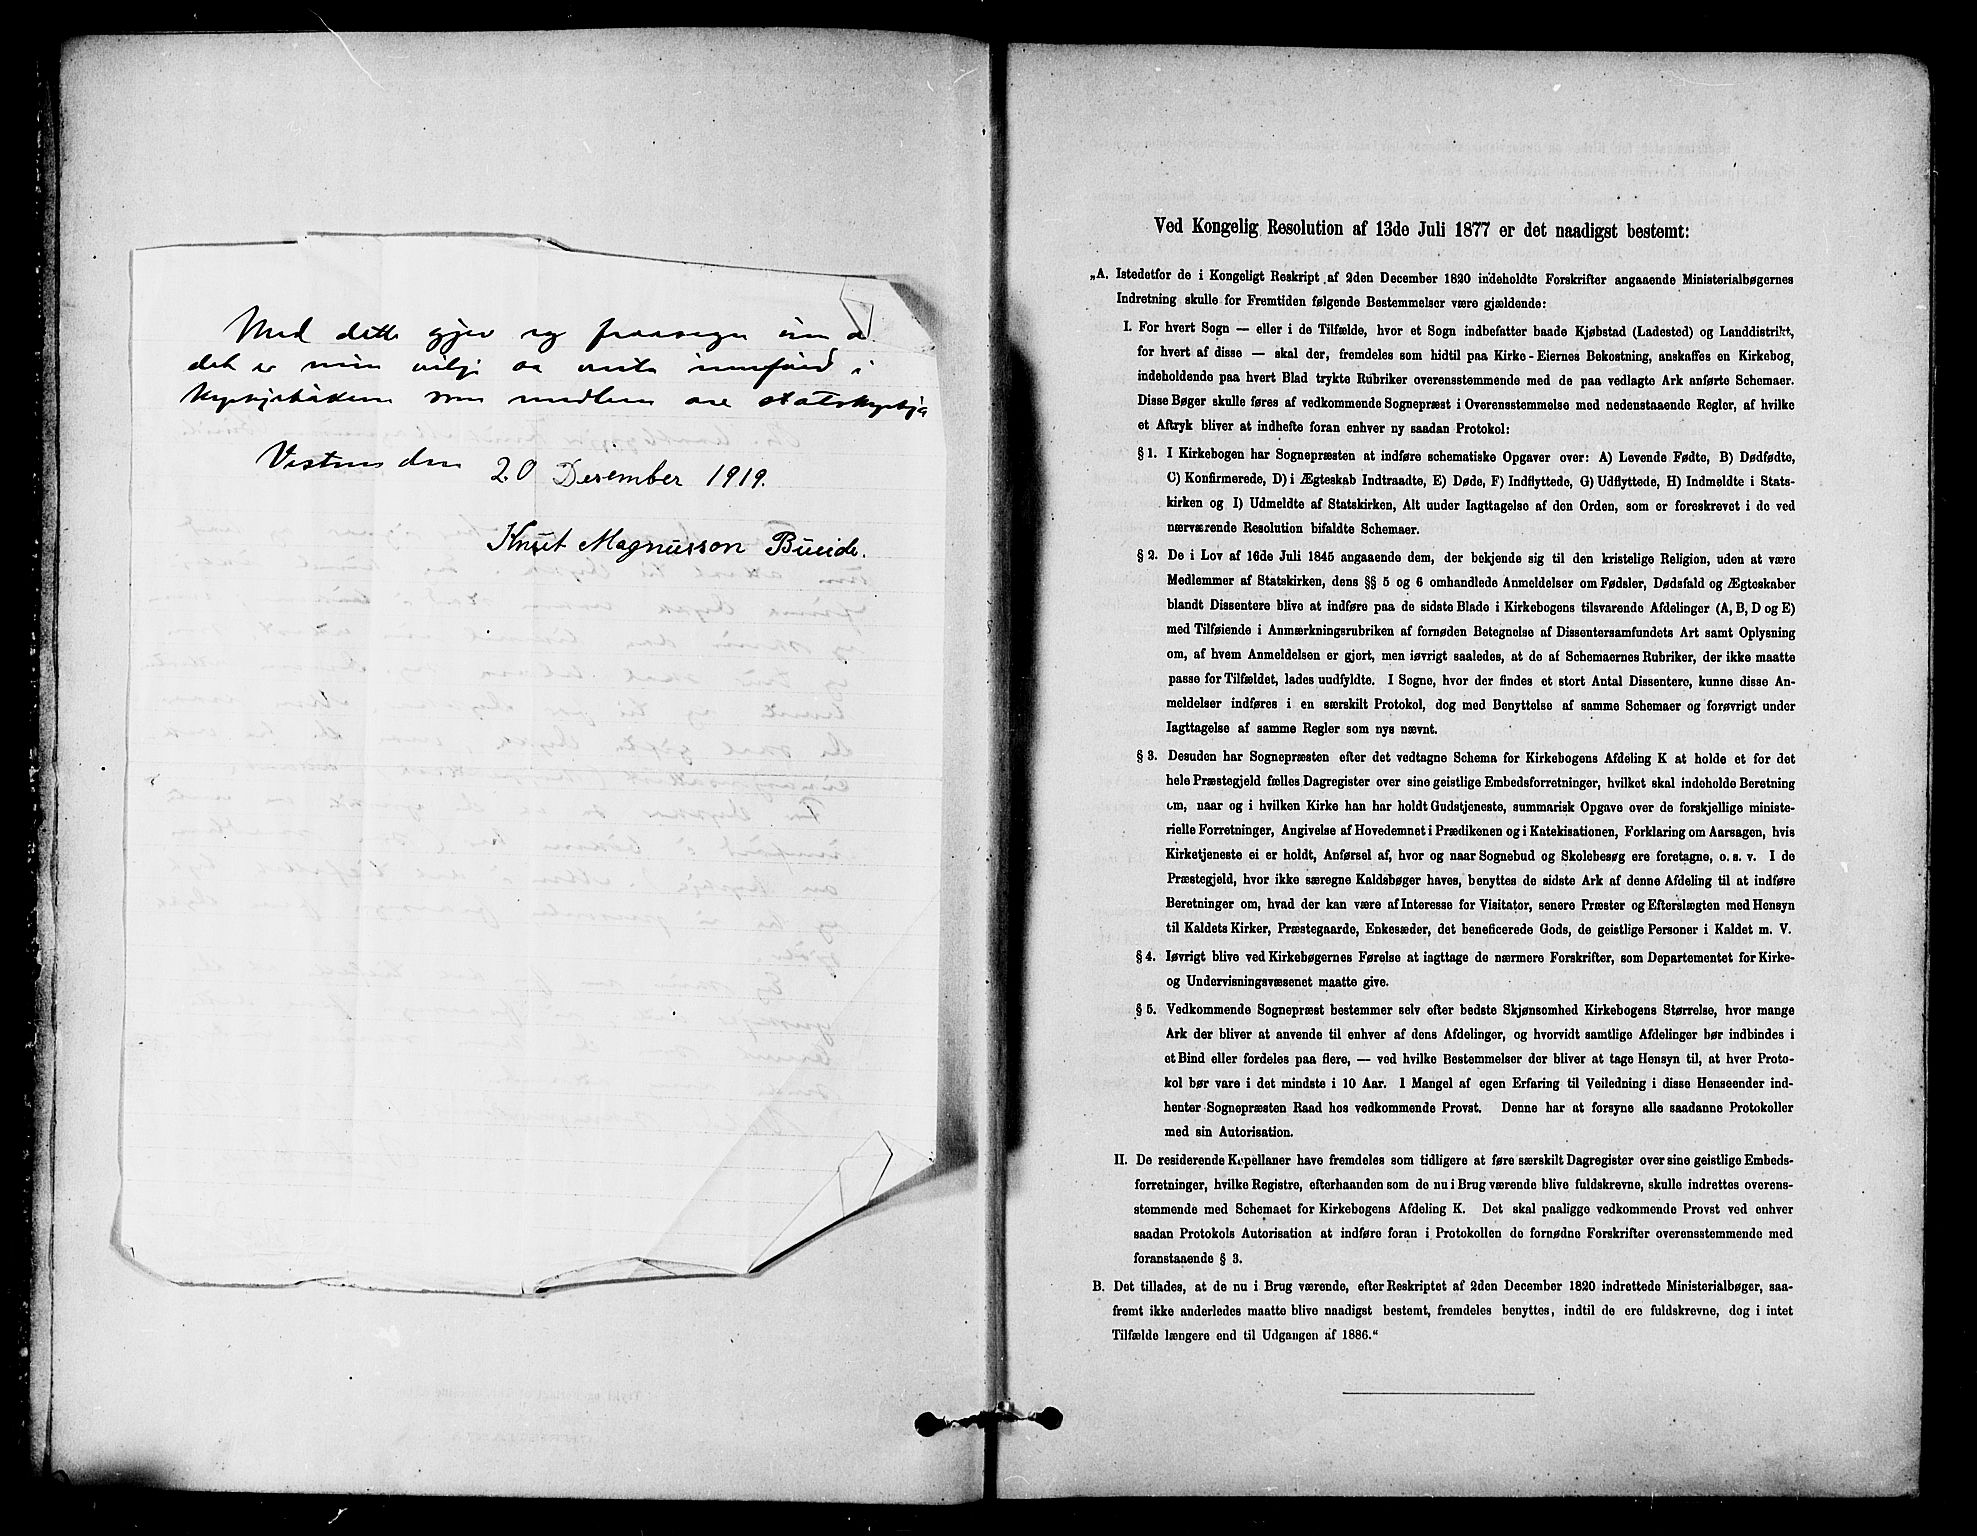 Med dette gjev eg fraasegn um a
det er min vilje aa verta innførd i
kyrkjebøkene som medlem av statskyrkja
Vistnes den 20 Desember 1919.
Knut Magnusson Bueide.
Ved Kongelig Resolution af 13de Juli 1877 er det naadigst bestemt:
„A. Istedetfor de i Kongeligt Reskript af 2den December 1820 indeholdte Forskrifter angaaende Ministerialbøgernes
Indretning skulle for Fremtiden følgende Bestemmelser være gjældende:
I. For hvert Sogn — eller i de Tilfælde, hvor et Sogn indbefatter baade Kjøbstad (Ladested) og Landdistrikt,
for hvert af disse — skal der, fremdeles som hidtil paa Kirke-Eiernes Bekostning, anskaffes en Kirkebog,
indeholdende paa hvert Blad trykte Rubriker overensstemmende med de paa vedlagte Ark anførte Schemaer.
Disse Bøger skulle føres af vedkommende Sognepræst i Overensstemmelse med nedenstaaende Regler, af hvilke
et Aftryk bliver at indhefte foran enhver ny saadan Protokol:
§ 1. I Kirkebogen har Sognepræsten at indføre schematiske Opgaver over: A) Levende Fødte, B) Dødfødte,
C) Konfirmerede, D) i Ægteskab Indtraadte, E) Døde, F) Indflyttede, G) Udflyttede, H) Indmeldte i Stats-
kirken og I) Udmeldte af Statskirken, Alt under Iagttagelse af den Orden, som er foreskrevet i de ved
nærværende Resolution bifaldte Schemaer.
§ 2. De i Lov af 16de Juli 1845 angaaende dem, der bekjende sig til den kristelige Religion, uden at være
Medlemmer af Statskirken, dens §§ 5 og 6 omhandlede Anmeldelser om Fødsler, Dødsfald og Ægteskaber
blandt Dissentere blive at indføre paa de sidste Blade i Kirkebogens tilsvarende Afdelinger (A, B, D og E)
med Tilføiende i Anmærkningsrubriken af fornøden Betegnelse af Dissentersamfundets Art samt Oplysning
om, af hvem Anmeldelsen er gjort, men iøvrigt saaledes, at de af Schemaernes Rubriker, der ikke maatte
passe for Tilfældet, lades uudfyldte. I Sogne, hvor der findes et stort Antal Dissentere, kunne disse An-
meldelser indføres i en særskilt Protokol, dog med Benyttelse af samme Schemaer og forøvrigt under
Iagttagelse af samme Regler som nys nævnt.
§ 3. Desuden har Sognepræsten efter det vedtagne Schema for Kirkebogens Afdeling K at holde et for det
hele Præstegjeld fælles Dagregister over sine geistlige Embedsforretninger, hvilket skal indeholde Beretning
om, naar og i hvilken Kirke han har holdt Gudstjeneste, summarisk Opgave over de forskjellige ministe-
rielle Forretninger, Angivelse af Hovedemnet i Prædikenen og i Katekisationen, Forklaring om Aarsagen, hvis
Kirketjeneste ei er holdt, Anførsel af, hvor og naar Sognebud og Skolebesøg ere foretagne, o. s. v. I de
Præstegjeld, hvor ikke særegne Kaldsbøger haves, benyttes de sidste Ark af denne Afdeling til at indføre
Beretninger om, hvad der kan være af Interesse for Visitator, senere Præster og Efterslægten med Hensyn
til Kaldets Kirker, Præstegaarde, Enkesæder, det beneficerede Gods, de geistlige Personer i Kaldet m. V.
§ 4. Iøvrigt blive ved Kirkebøgernes Førelse at iagttage de nærmere Forskrifter, som Departementet for Kirke-
og Undervisningsvæsenet maatte give.
§ 5. Vedkommende Sognepræst bestemmer selv efter bedste Skjønsomhed Kirkebogens Størrelse, hvor mange
Ark der bliver at anvende til enhver af dens Afdelinger, og hvorvidt samtlige Afdelinger bør indbindes i
et Bind eller fordeles paa flere, — ved hvilke Bestemmelser der bliver at tage Hensyn til, at hver Proto-
kol bør vare i det mindste i 10 Aar. I Mangel af egen Erfaring til Veiledning i disse Henseender ind-
henter Sognepræsten Raad hos vedkommende Provst. Denne har at forsyne alle saadanne Protokoller
med sin Autorisation.
II. De residerende Kapellaner have fremdeles som tidligere at føre særskilt Dagregister over sine geistlige Embeds-
forretninger, hvilke Registre, efterhaanden som de nu i Brug værende blive fuldskrevne, skulle indrettes overens-
stemmende med Schemaet for Kirkebogens Afdeling K. Det skal paaligge vedkommende Provst ved enhver
saadan Protokols Autorisation at indføre foran i Protokollen de fornødne Forskrifter overensstemmende med
foranstaaende § 3.
B. Det tillades, at de nu i Brug værende, efter Reskriptet af 2den December 1820 indrettede Ministerialbøger, saa-
fremt ikke anderledes maatte blive naadigst bestemt, fremdeles benyttes, indtil de ere fuldskrevne, dog i intet
Tilfælde længere end til Udgangen af 1886.“